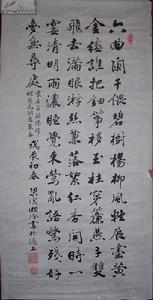 六曲闌干偎碧樹楊柳風輕展盡黃
金縷誰把鈿箏移玉柱穿簾燕子雙
飛去滿眼游絲兼落絮紅杏開時一
霎清明雨濃睡覺來鶯亂語驚殘好
夢無尋處
戊辰初春